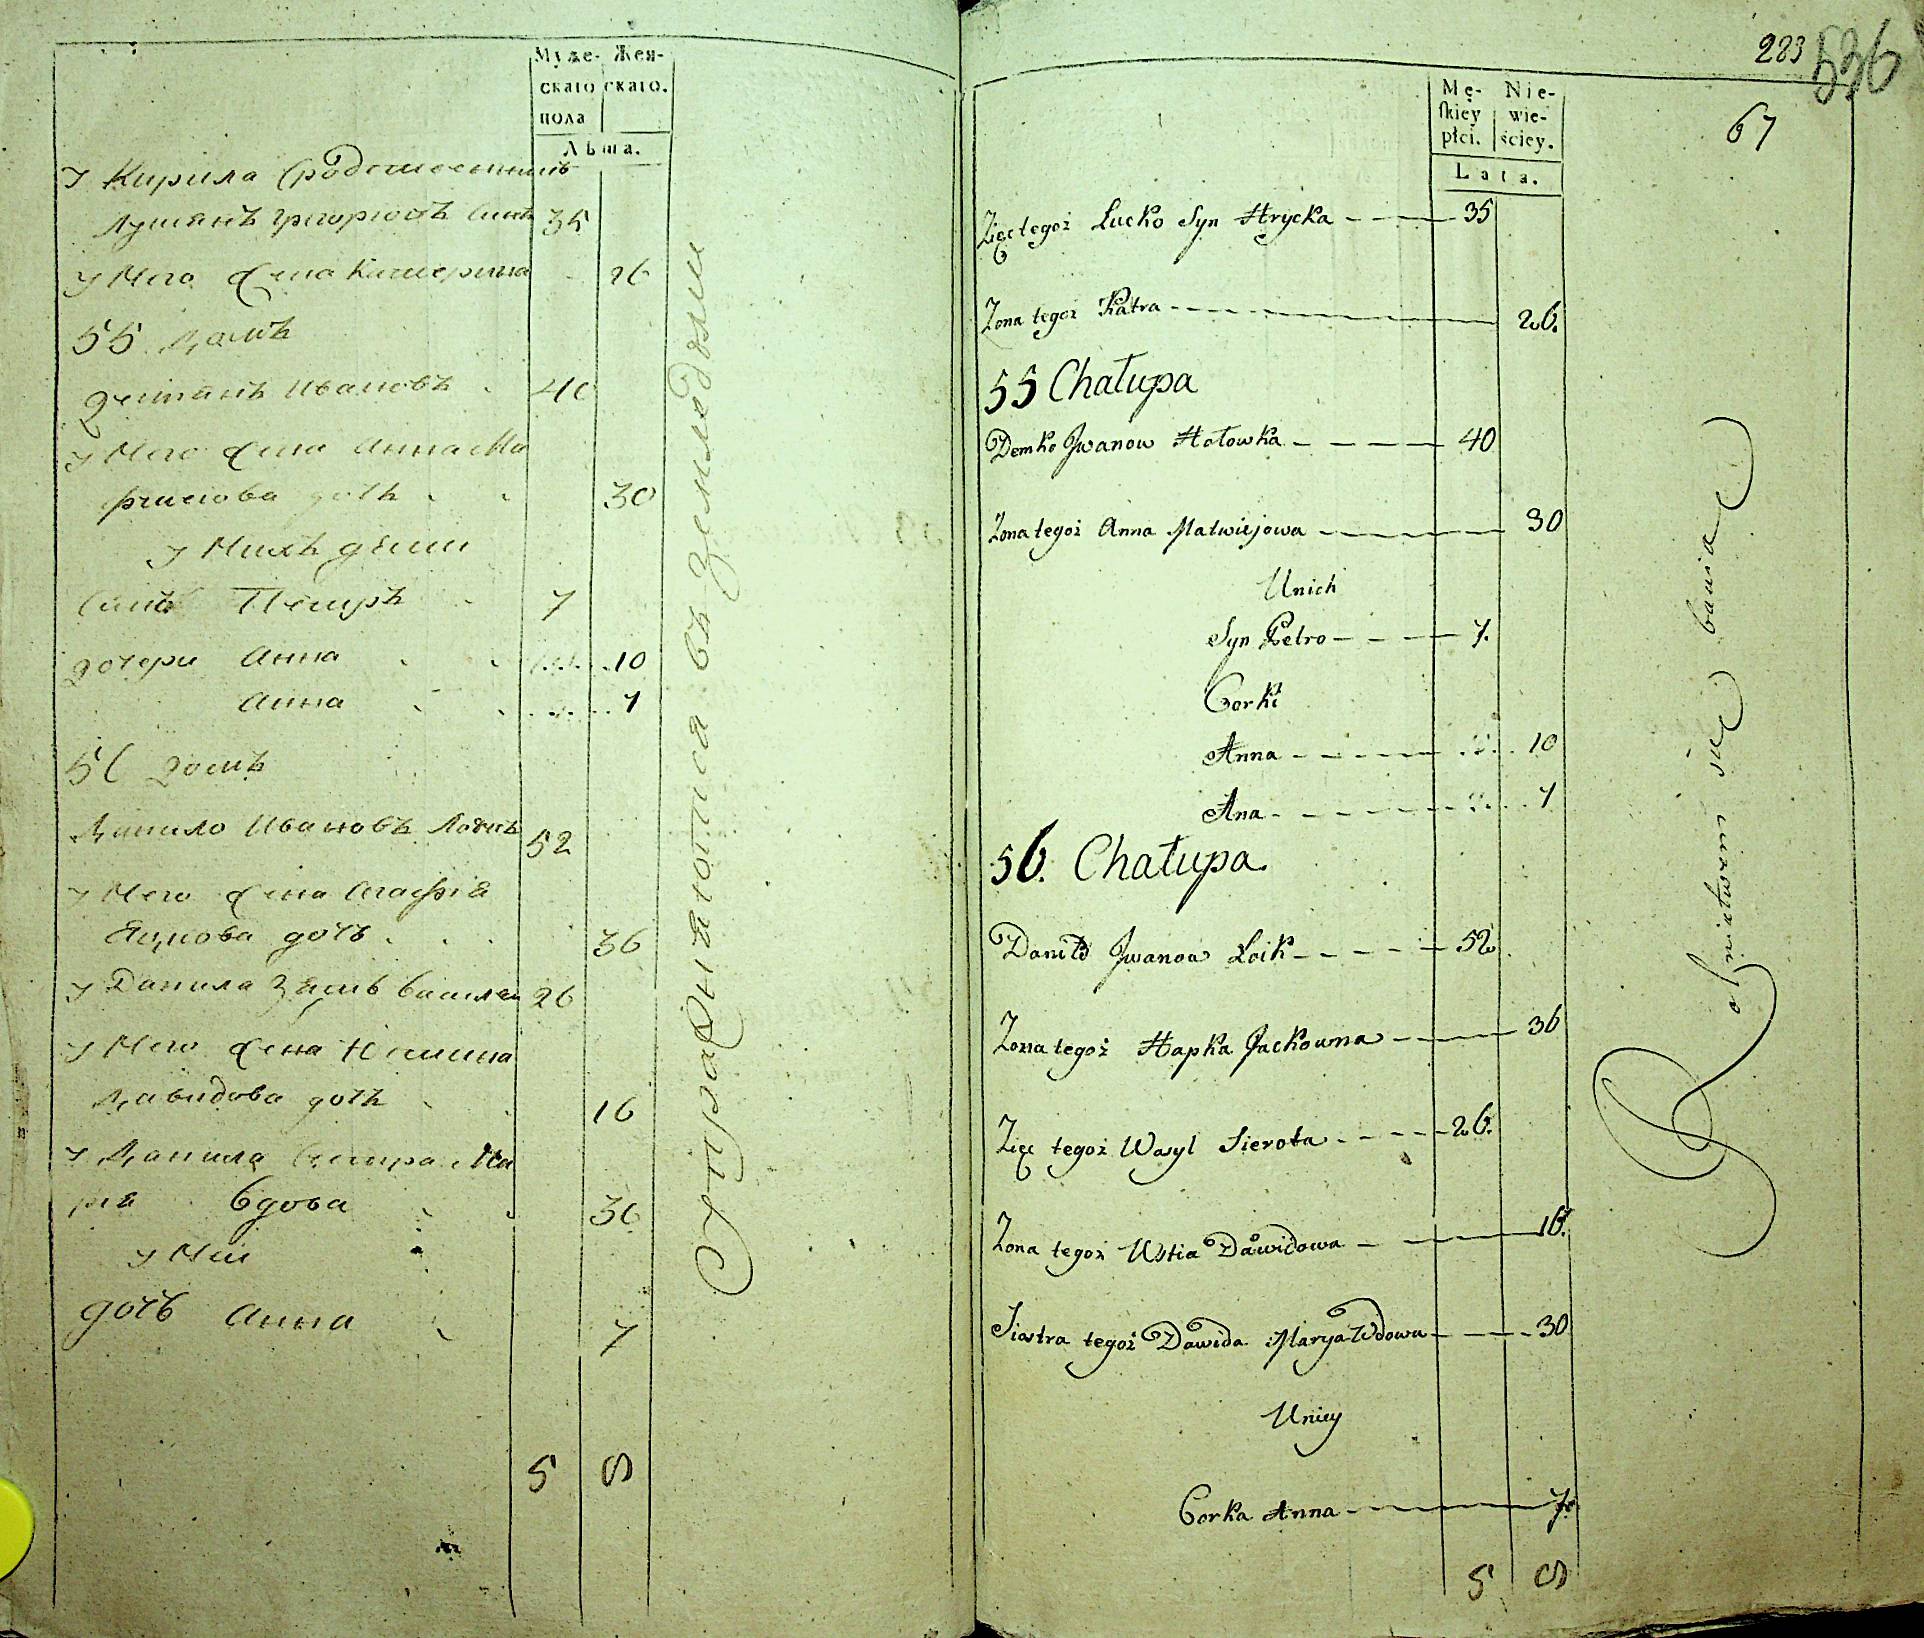 Муже- Жен-
скаго скаго.
пола
Лѣта.
У Кирила сродственникъ
Лукьянъ Григорьевъ сынъ 35
У Него жена Катерина 26
55 Домъ
Демьянъ Ивановъ 40
У Него жена Анна Ма
твиева дочь 30
У Нихъ дѣти
Сынъ Петръ 7
дочери Анна 10
Анна 1
56 домъ
Данило Ивановъ Лоикъ 52
У Него жена Агафія
Яцкова дочь 36
У Данила зять Василей 26
У Него жена Юстина
Давидова дочь 16
У Данила сестра Ма
рія вдова 30
У Ней
дочь Анна 7
5 8
Упражняются въ земледелии
283
536
67
Mę- Nie-
skiey wie-
płci. ściey.
Lata.
Zięć tegoż Łucko Syn Hrycka 35
Zona tegoż Katra 26.
55 Chałupa
Demko Jwanow Hołowka 40
Zona tegoż Anna Matwiejowa 30
Unich
Syn Petro 7.
Corki
Anna 10
Ana 1
56. Chałupa
Daniło Jwanow Łoik 52
Zona tegoż Hapka Jackowna 36
Zięć tegoż Wasyl Sierota 26.
Zona tegoż Ustia Dawidowa 16.
Siostra tegoż Dawida Marya Wdowa 30
Uniey
Corka Anna 7.
5 8
Rolnictwem się bawią